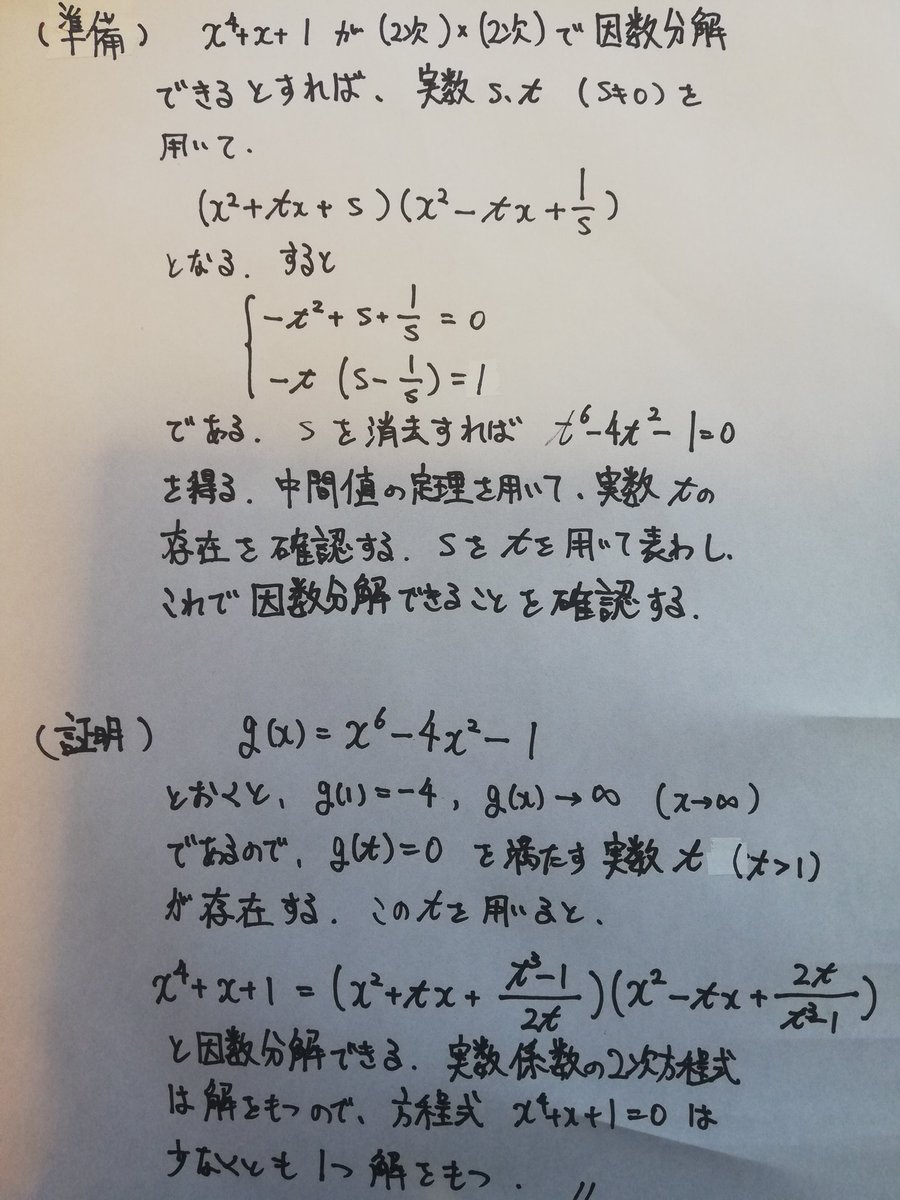 (準備) x⁴+x+1 が (2次)×(2次)で因数分解
できるとすれば、実数 s、t (s≠0) を
用いて.
(x²+tx+s)(x²-tx+1/s)
となる. すると
{ -t²+s+1/s=0
-t(s-1/s)=1
である. s を消去すれば t⁶-4t²-1=0
を得る. 中間値の定理を用いて、実数 t の
存在を確認する. s を t を用いて表わし、
これで因数分解できることを確認する.
(証明) g(x)=x⁶-4x²-1
とおくと、g(1)=-4, g(x)→∞ (x→∞)
であるので、g(t)=0 を満たす実数 t (t>1)
が存在する. この t を用いると、
x⁴+x+1=(x²+tx+(t³-1)/2t)(x²-tx+2t/(t³-1))
と因数分解できる. 実数係数の2次方程式
は解をもつので、方程式 x⁴+x+1=0 は
少なくとも1つ解をもつ. //